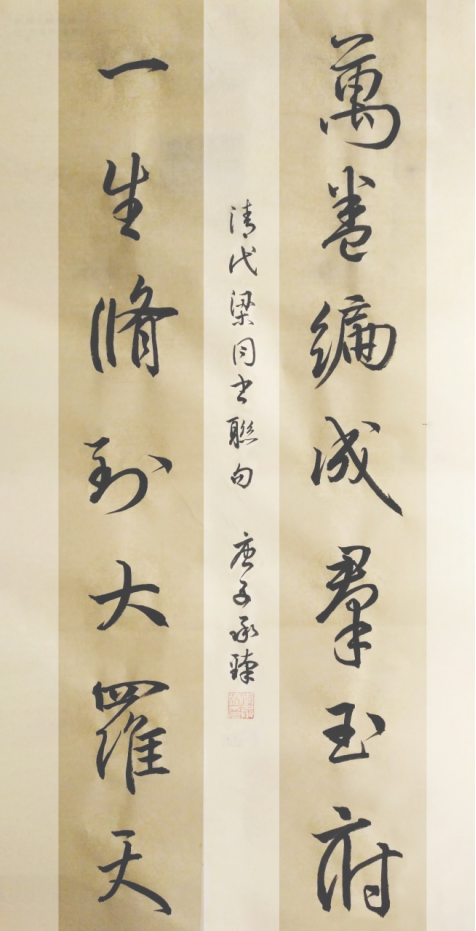 萬卷編成羣玉府
清代梁同書聯句 庚子承瑓
一生脩到大羅天